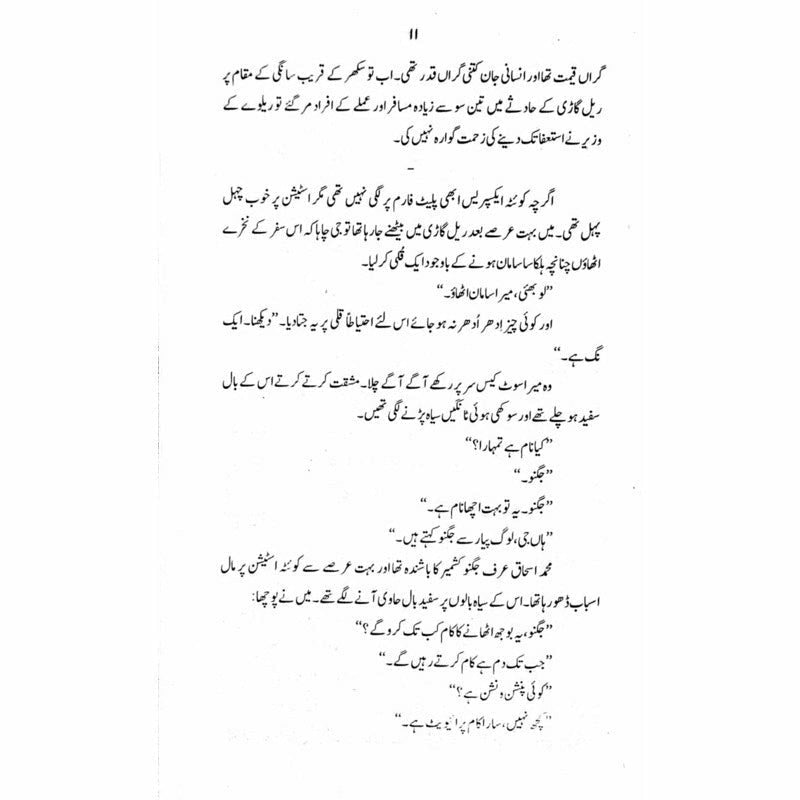 ۱۱
گراں قیمت تھا اور انسانی جان کتنی گراں قدر تھی۔ اب تو سکھر کے قریب سانگی کے مقام پر
ریل گاڑی کے حادثے میں تین سو سے زیادہ مسافر اور عملے کے افراد مر گئے تو ریلوے کے
وزیر نے استعفا تک دینے کی زحمت گوارہ نہیں کی۔
-
اگرچہ کوئٹہ ایکسپریس ابھی پلیٹ فارم پر لگی نہیں تھی مگر اسٹیشن پر خوب چہل
پہل تھی۔ میں بہت عرصے بعد ریل گاڑی میں بیٹھنے جا رہا تھا تو جی چاہا کہ اس سفر کے نخرے
اٹھاؤں چنانچہ ہلکا سا سامان ہونے کے باوجود ایک قُلی کر لیا۔
”لو بھئی، میرا سامان اٹھاؤ۔“
اور کوئی چیز اِدھر اُدھر نہ ہو جائے اس لئے احتیاطاً قلی پر یہ جتا دیا۔ ”دیکھنا۔ ایک
نگ ہے۔“
وہ میرا سوٹ کیس سر پر رکھے آگے آگے چلا۔ مشقت کرتے کرتے اس کے بال
سفید ہو چلے تھے اور سوکھی ہوئی ٹانگیں سیاہ پڑنے لگی تھیں۔
”کیا نام ہے تمہارا؟“
”جگنو۔“
”جگنو۔ یہ تو بہت اچھا نام ہے۔“
”ہاں جی، لوگ پیار سے جگنو کہتے ہیں۔“
محمد اسحاق عرف جگنو کشمیر کا باشندہ تھا اور بہت عرصے سے کوئٹہ اسٹیشن پر مال
اسباب ڈھو رہا تھا۔ اس کے سیاہ بالوں پر سفید بال حاوی آنے لگے تھے۔ میں نے پوچھا:
”جگنو، یہ بوجھ اٹھانے کا کام کب تک کرو گے؟“
”جب تک دم ہے کام کرتے رہیں گے۔“
”کوئی پنشن ونشن ہے؟“
”کچھ نہیں، سارا کام پرائیویٹ ہے۔“